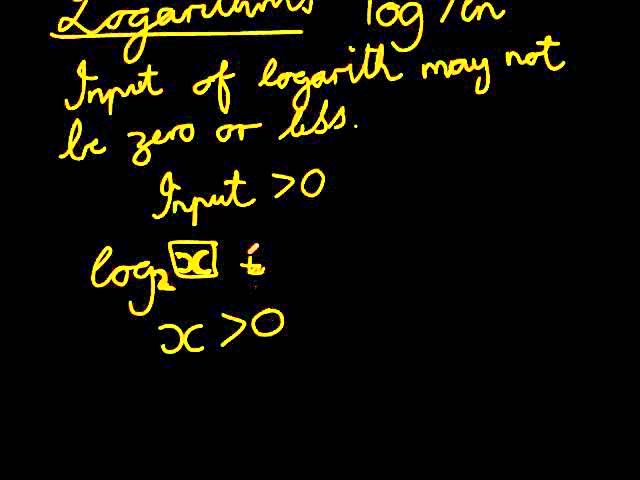 Logarithms log/ln
Input of logarith may not
be zero or less.
Input >0
log₂ x
x >0